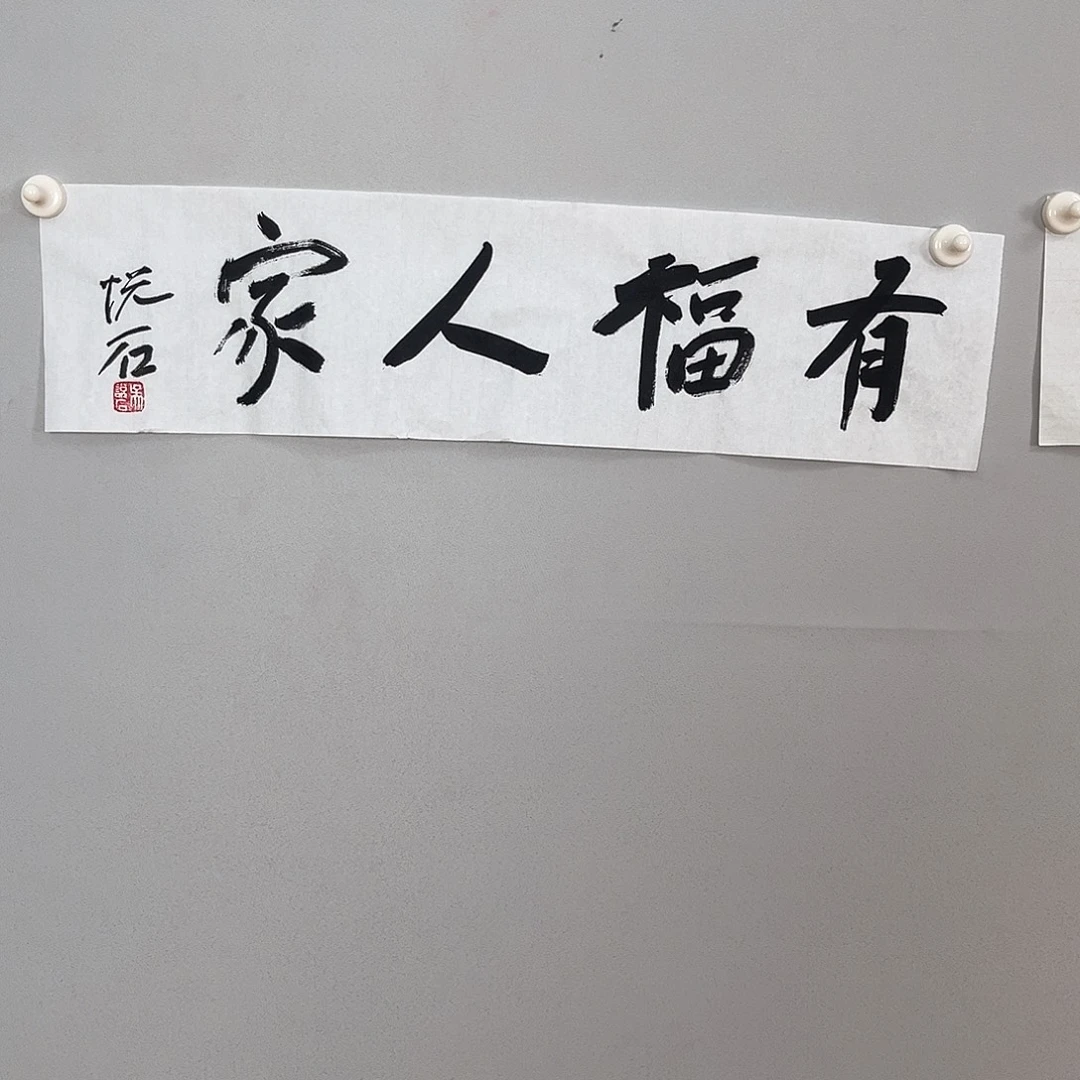 有福人家
悦石